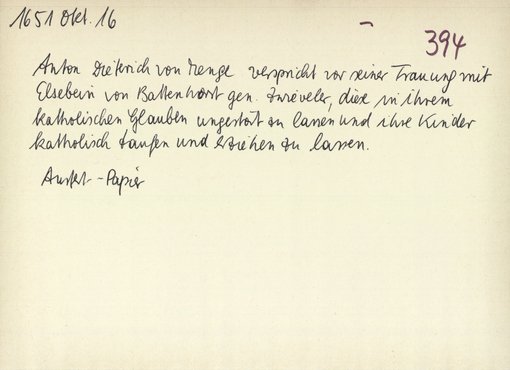 1651 Okt. 16
394
Anton Dieterich von Menge verspricht vor seiner Trauung mit
Elsebein von Battenhorst gen. Zwiveler, diese in ihrem
katholischen Glauben ungestört zu lassen und ihre Kinder
katholisch taufen und erziehen zu lassen.
Ausf. - Papier